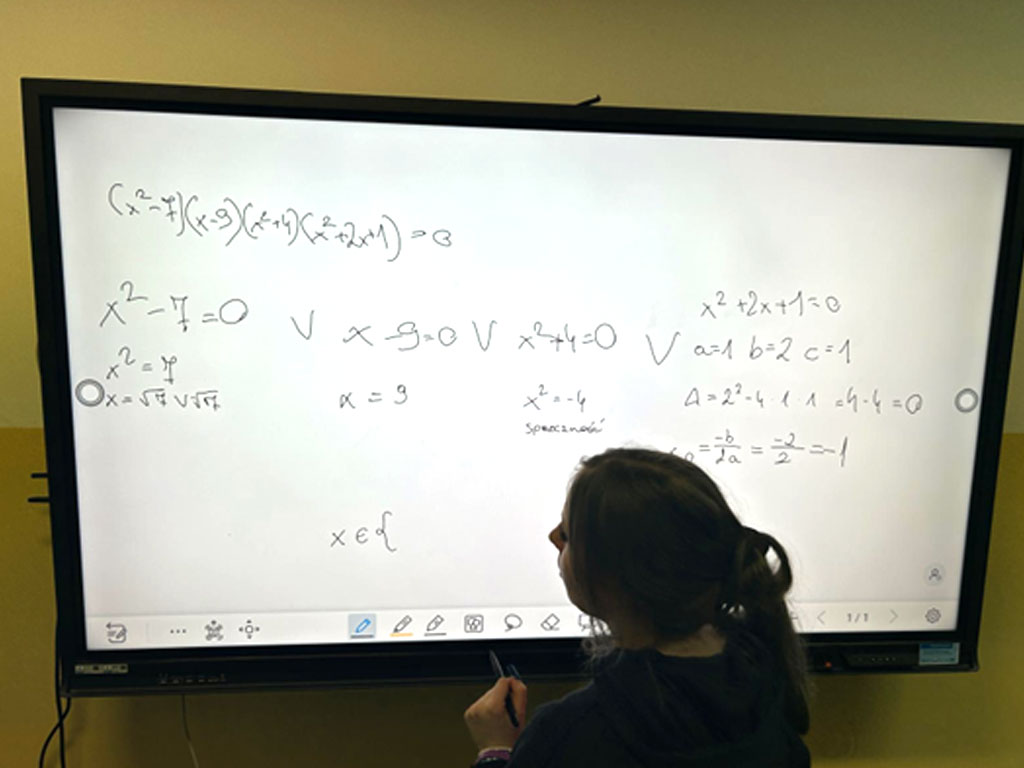 (x²-7)(x-9)(x²+4)(x²+2x+1)=0
x²-7=0 ∨ x-9=0 ∨ x²+4=0 ∨ x²+2x+1=0
a=1 b=2 c=1
x²=7
x=√7 ∨ √7
x=9
x²=-4
sprzeczność
Δ=2²-4·1·1=4-4=0
=-b/2a=-2/2=-1
x∈{
1/1